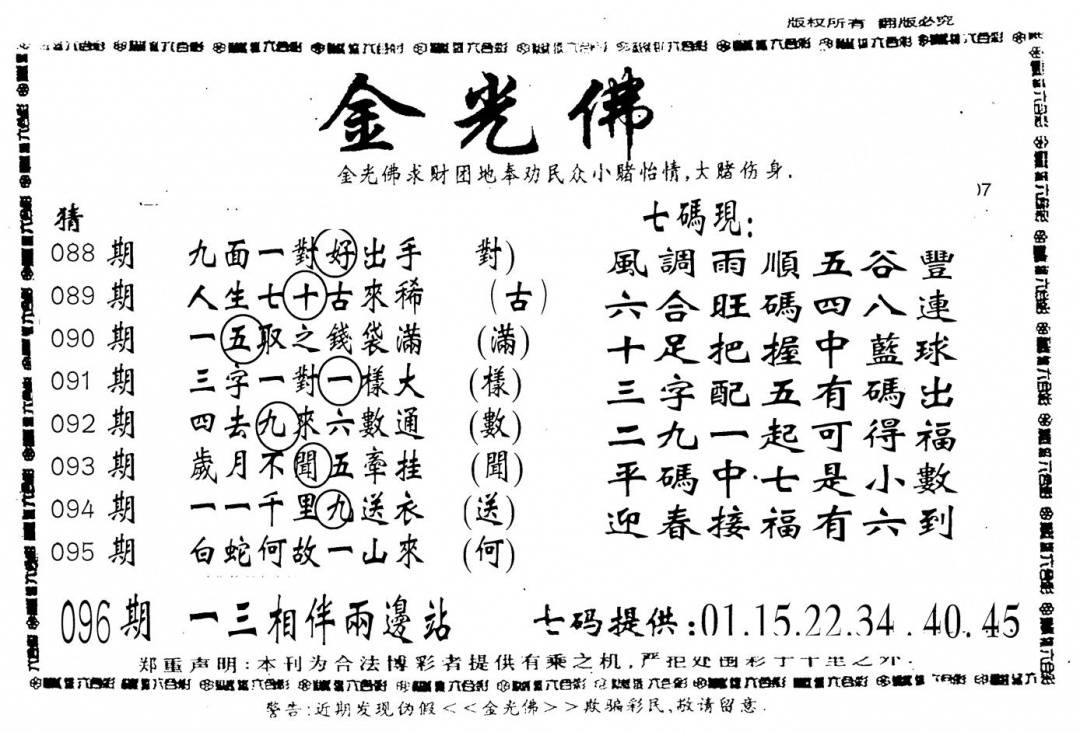 版权所有 翻版必究
金光佛
金光佛求财团地奉劝民众小赌怡情,大赌伤身.
07
猜
088期 九面一對好出手 對)
089期 人生七十古來稀 (古)
090期 一五取之錢袋滿 (滿)
091期 三字一對一樣大 (樣)
092期 四去九來六數通 (數)
093期 歲月不聞五牽挂 (聞)
094期 一一千里九送衣 (送)
095期 白蛇何故一山來 (何)
七碼現:
風調雨順五谷豐
六合旺碼四八連
十足把握中藍球
三字配五有碼出
二九一起可得福
平碼中七是小數
迎春接福有六到
096期 一三相伴兩邊站 七码提供:01.15.22.34.40.45
郑重声明:本刊为合法博彩者提供有乘之机,严拒处围彩于千里之外.
警告:近期发现伪假<<金光佛>>欺骗彩民,敬请留意.